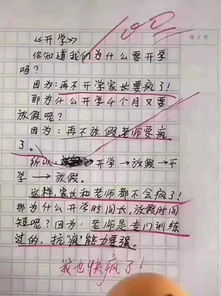 《开学》
你知道我们为什么要开学
吗?
因为:再不开学家长要疯了!
那为什么开学4个月又要
放假呢?
因为:再不放假老师要疯
了.
所以 开学→放假→开
学→放假.
这样,家长和老师都不会疯了!
那为什么开学时间长,放假时间
短呢?因为:老师是专门训练
过的,抗疯能力要强.
我也快疯了!